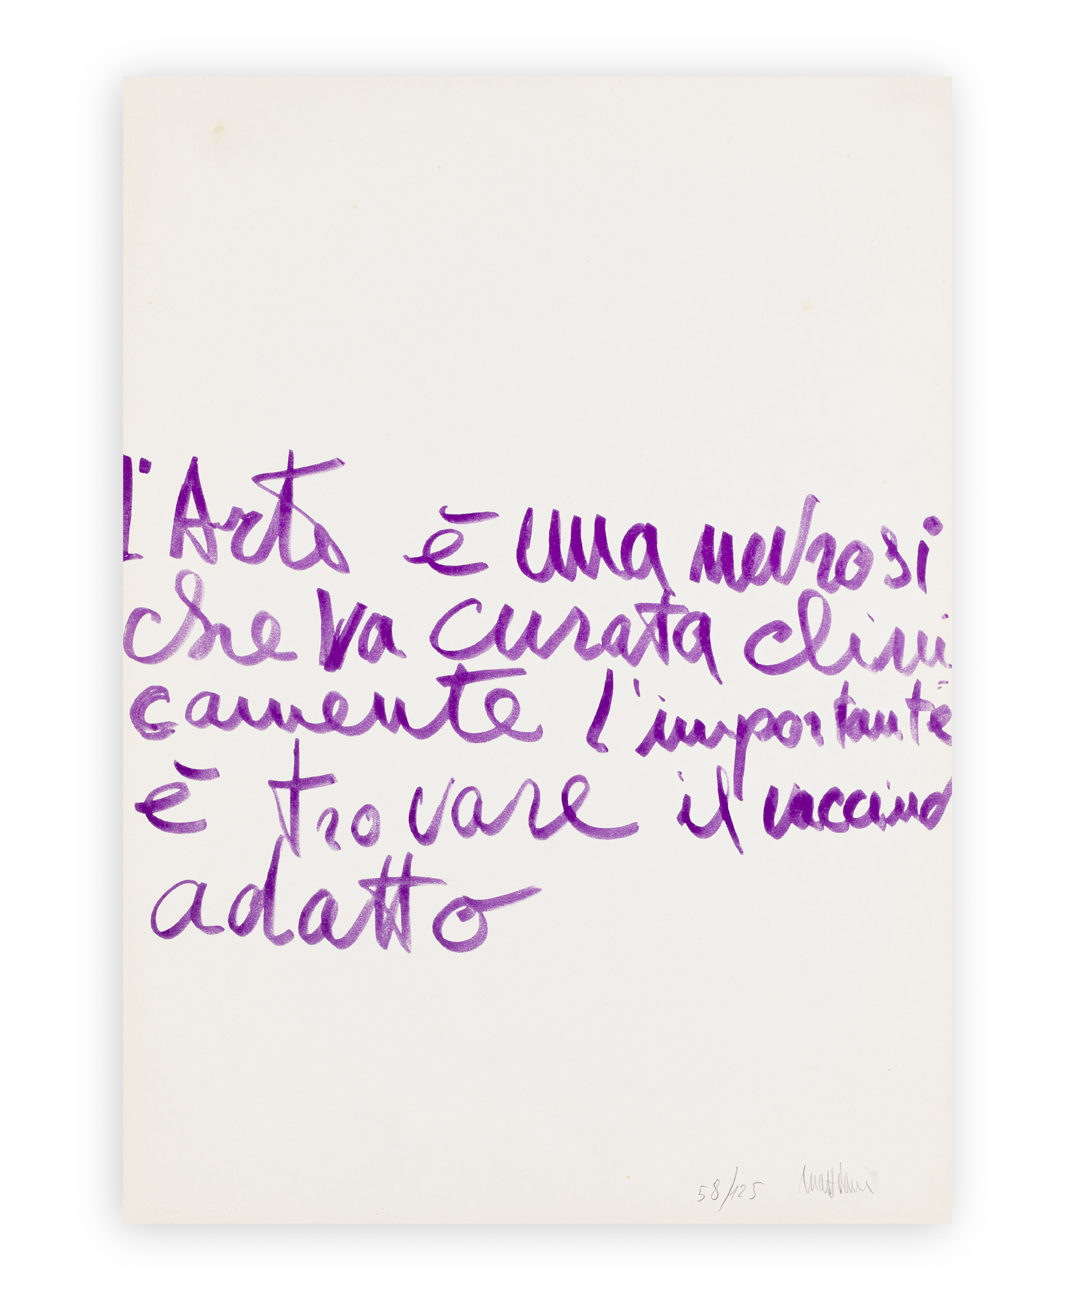 l'Arte è una nevrosi
che va curata clini
camente l'importante
è trovare il vaccino
adatto
58/125